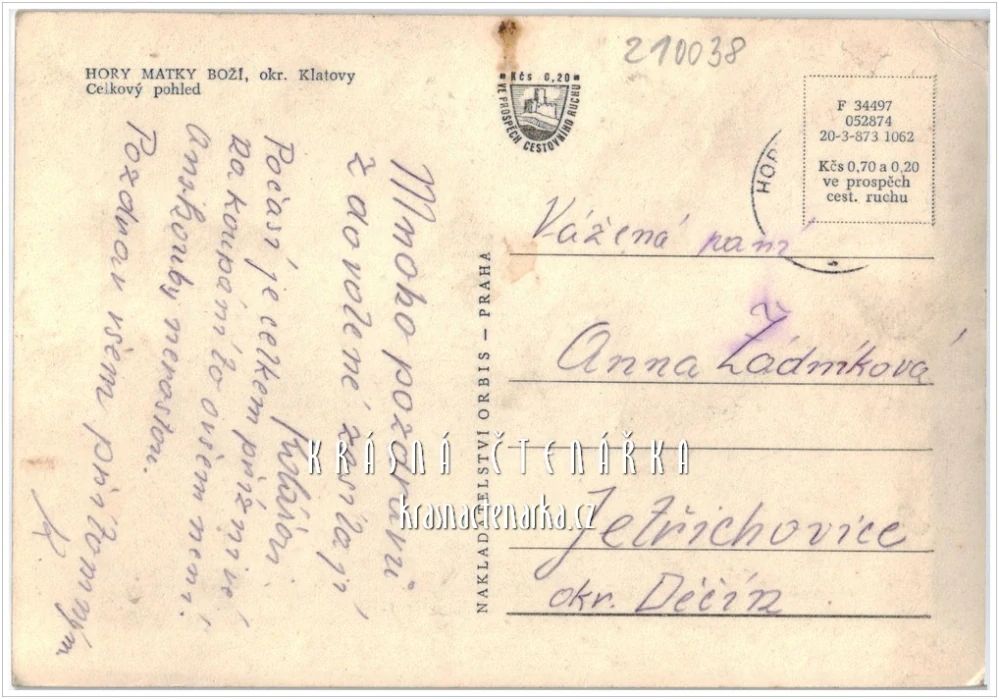 HORY MATKY BOŽÍ, okr. Klatovy
Celkový pohled
210038
Kčs 0,20
VE PROSPĚCH CESTOVNÍHO RUCHU
F 34497
052874
20-3-873 1062
Kčs 0,70 a 0,20
ve prospěch
cest. ruchu
HOR
Mnoho pozdravů
z dovolené zasílají
Počasí je celkem příznivé
na koupání to ovšem není.
Ani houby nerostou.
Pozdrav všem přítomným
NAKLADATELSTVÍ ORBIS — PRAHA
Vážená paní
Anna Žádníková
Jetřichovice
okr. Děčín
KRÁSNÁ ČTENÁŘKA
krasnactenarka.cz